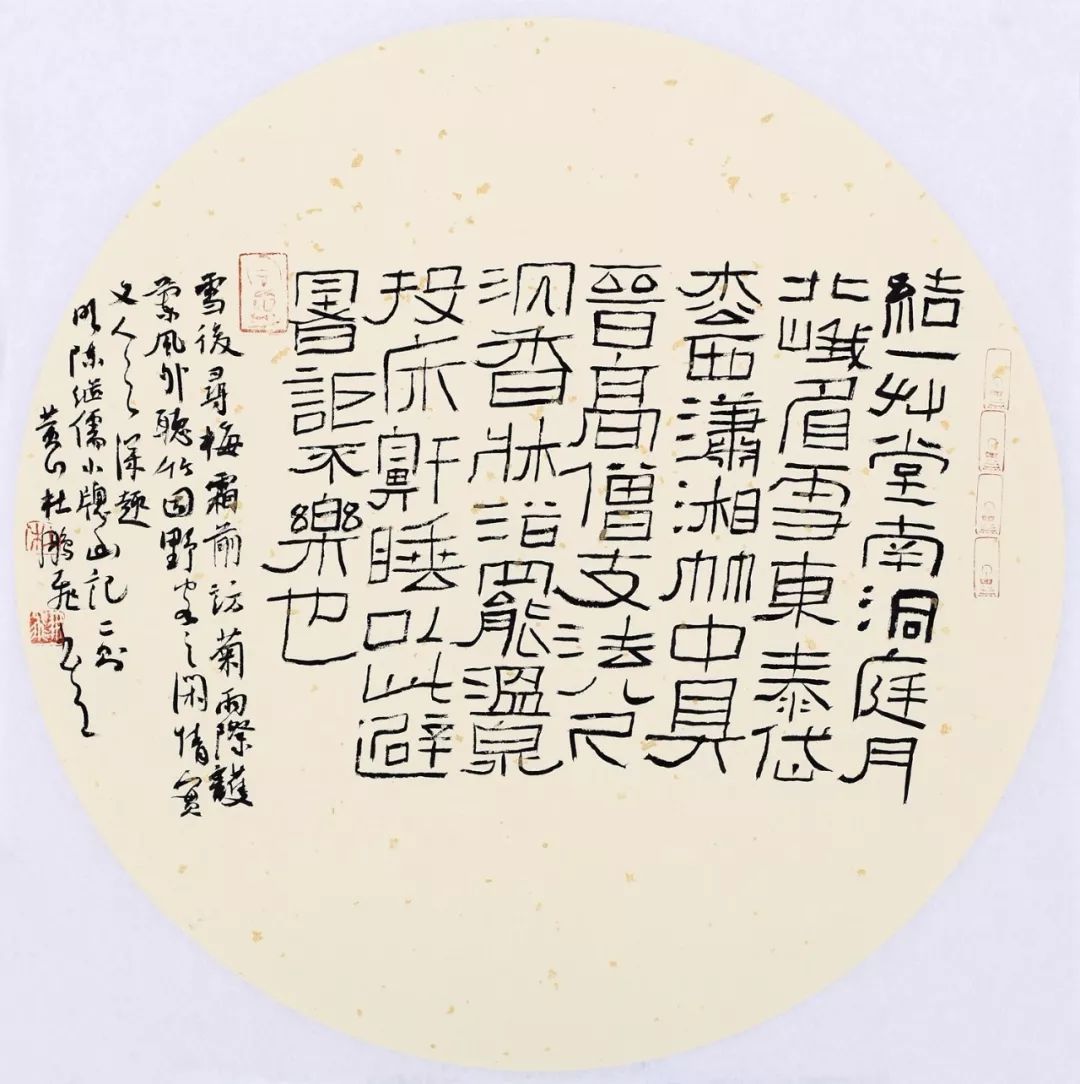 結一艸堂南洞庭月
北峨眉雪東泰岱
枩西瀟湘竹中具
晉高僧支法八尺
沉香牀浴罷溫泉
投床鼾睡以此避
暑詎不樂也
雪後尋梅霜前訪菊雨際護
蘭風外聽竹固野客之閑情實
文人之深趣
明陳繼儒小牕幽記二則
黃山杜鵬飛書之